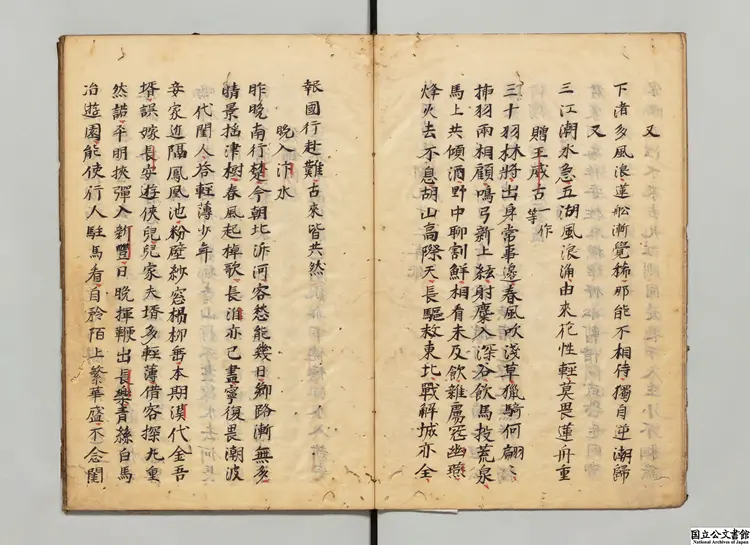 又
下渚多風浪蓮舩漸覺稀那能不相待獨自逆潮歸
又
三江潮水急五湖風浪涌由來花性輕莫畏蓮舟重
贈王威古
三十羽林將出身常事邊春風吹淺草獵騎何翩〻
挿羽兩相顧鳴弓新上弦射麋入深谷飲馬投荒泉
馬上共傾酒野中聊割鮮相看未及飲雜虜寇幽燕
烽火去不息胡山高際天長驅救東北戰解城亦全
報國行赴難古來皆共然
晩入汴水
昨晩南行楚今朝北泝河客愁能幾日鄉路漸無多
晴景揺津樹春風起棹歌長淮亦已盡寧復畏潮波
代閨人荅輕薄少年
妾家近隔鳳凰池粉壁紗窓楊柳垂本期漢代金吾
壻誤嫁長安遊俠兒兒家夫壻多輕薄借客探丸重
然諾平明挾彈入新豐日晩揮鞭出長樂青絲白馬
冶遊園能使行人駐馬看自矜陌上繁華盛不念閨
国立公文書館
National Archives of Japan